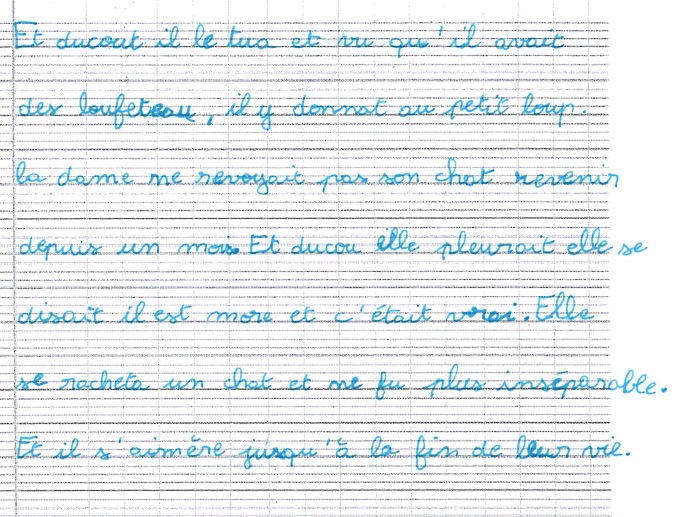 Et ducout il le tua et vu qu'il avait
des loufeteau, il y donnat au petit loup.
la dame ne revoyait pas son chat revenir
depuis un mois. Et ducou elle pleurait elle se
disait il est more et c'était vrai. Elle
se racheta un chat et ne fu plus inséparable.
Et il s'aimère jusqu'à la fin de leur vie.